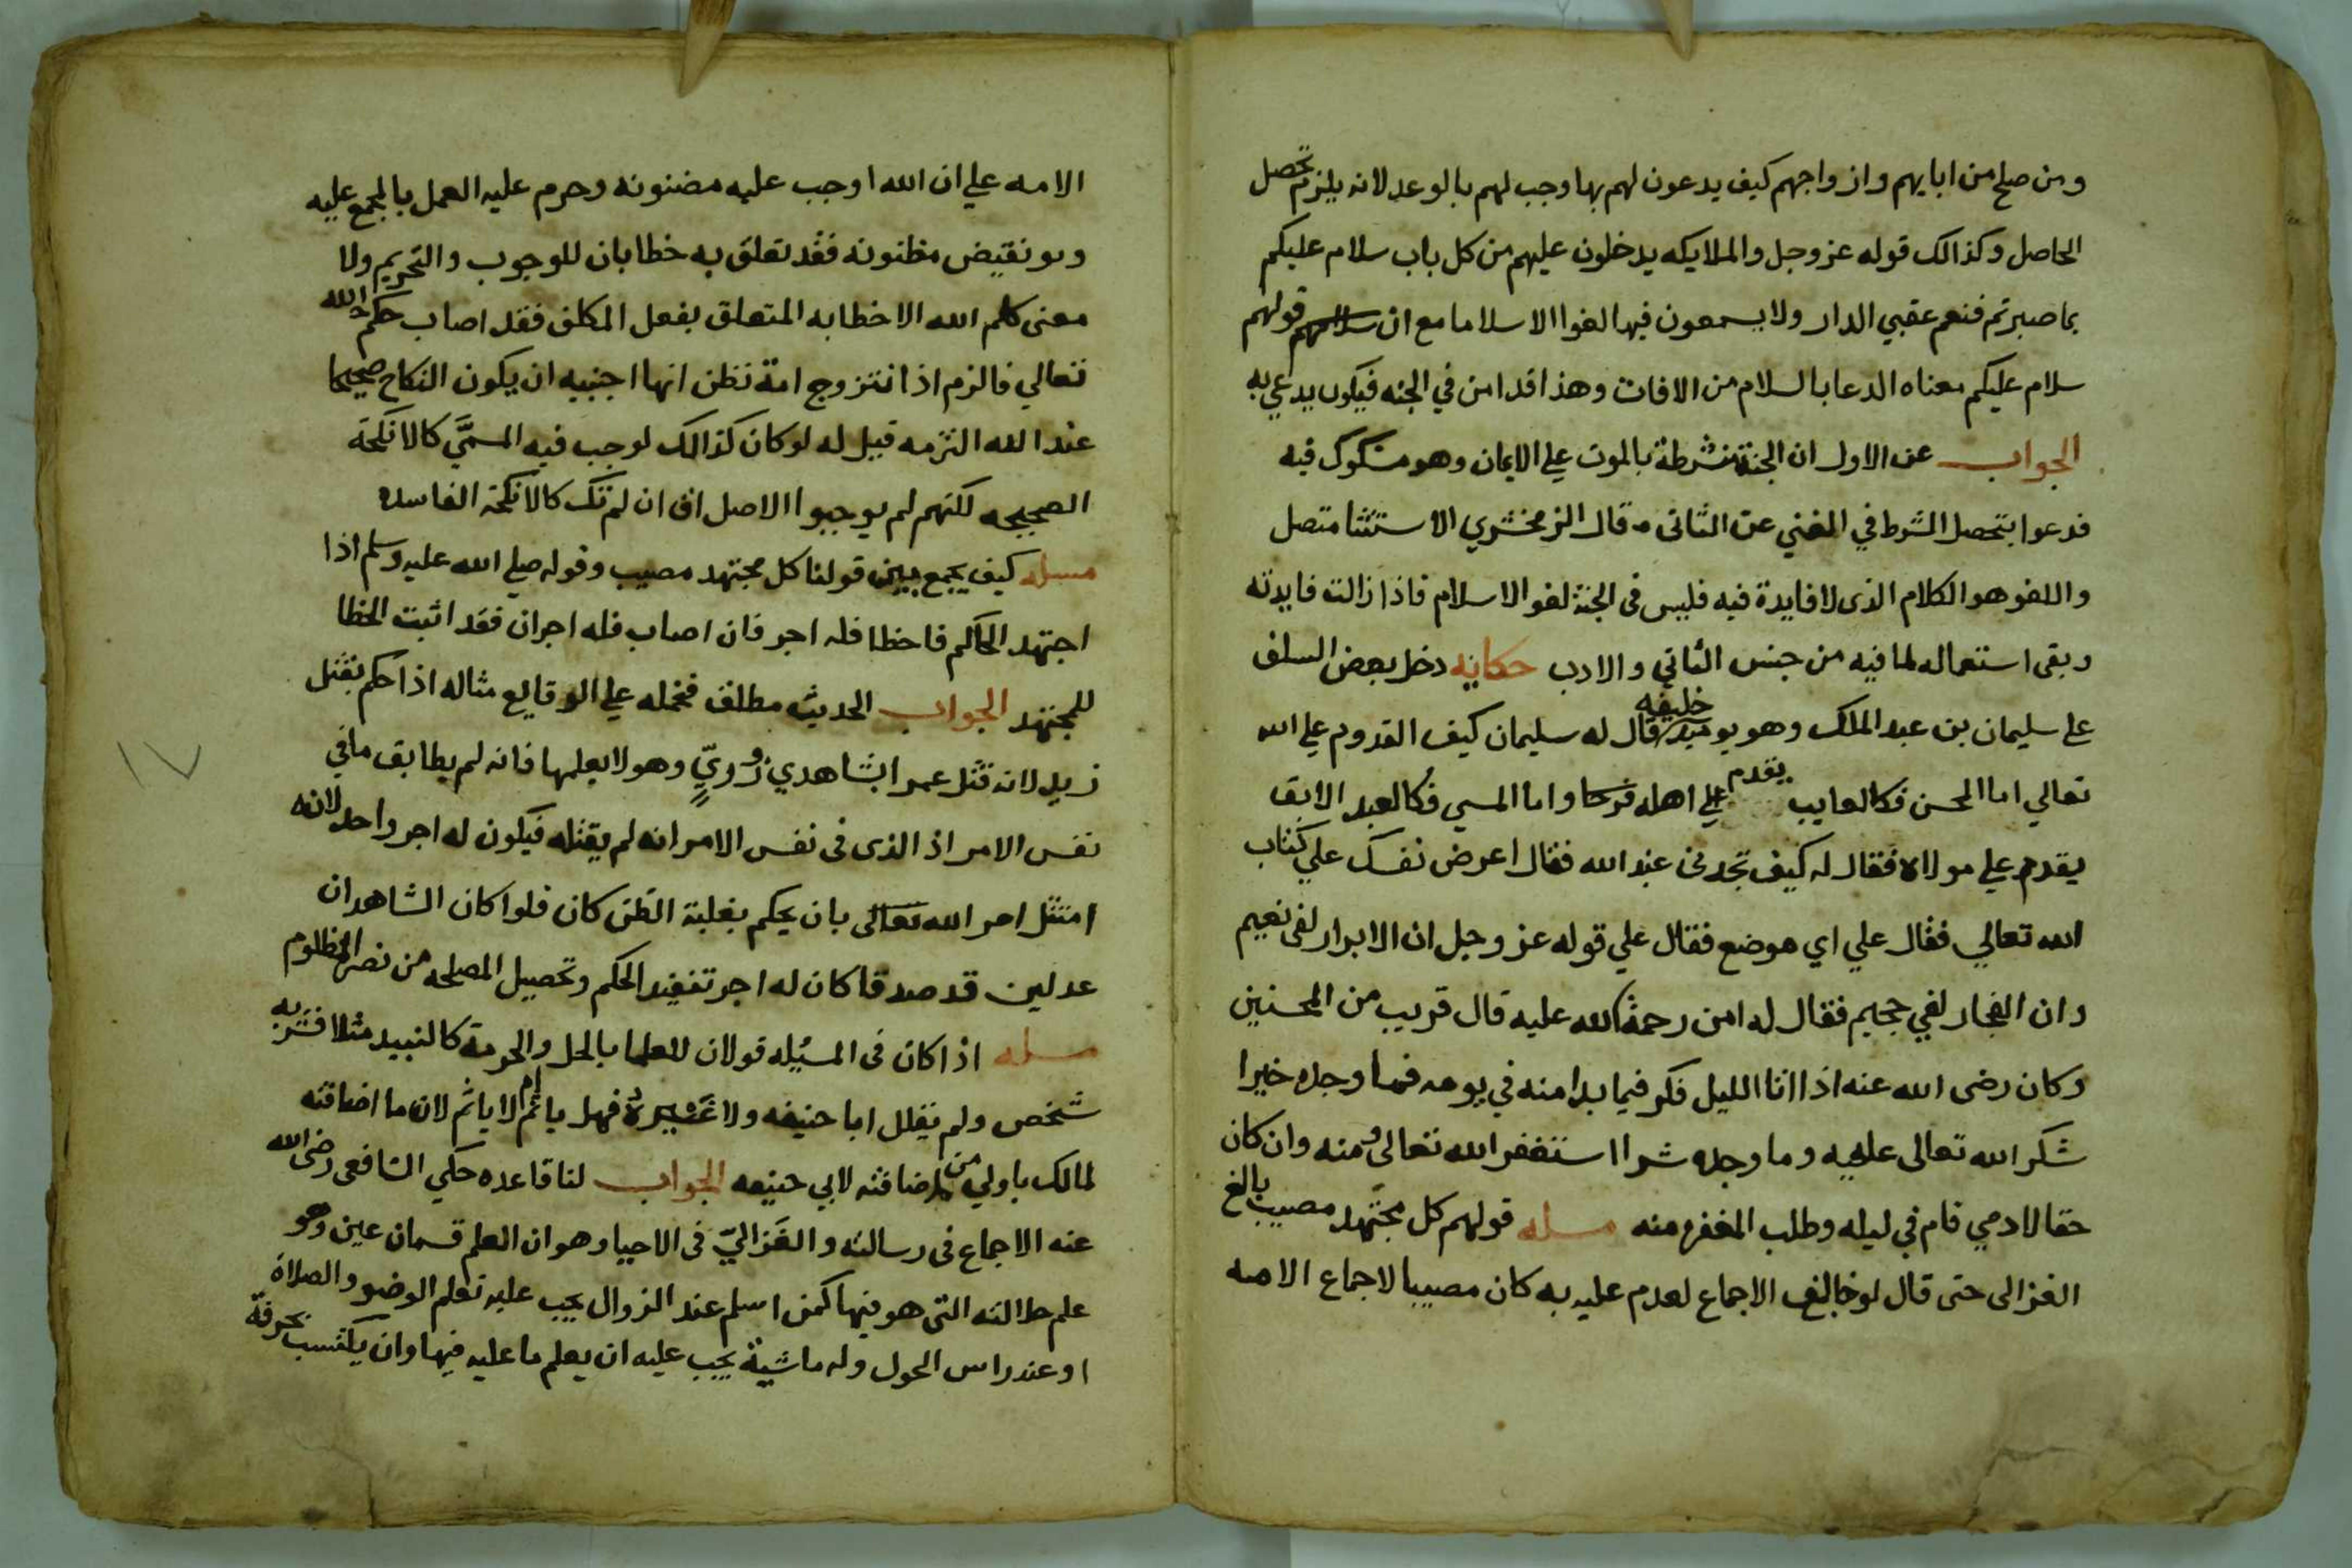 ومن صلح من ابايهم وازواجهم كيف يدعون لهم بها وجب لهم بالوعد لانه يلزم تحصل
الحاصل وكذالك قوله عز وجل والملايكه يدخلون عليهم من كل باب سلام عليكم
بما صبرتم فنعم عقبي الدار ولا يسمعون فيها لغوا الا سلاما مع ان قولهم
سلام عليكم معناه الدعا بالسلام من الافات وهذا قد امن في الجنه فيكون يدعي به
الجواب عن الاول ان الجنة منشرطة بالموت علي الايمان وهو مشكوك فيه
فدعوا بتحصل الشرط في المغني عن الثاني قال الزمخشري الاستثنا متصل
واللغو هو الكلام الذى لا فايدة فيه فليس فى الجنة لغو الا سلام فاذا زالت فايدته
وبقى استعماله لما فيه من جنس الثاني والادب حكايه دخل بعض السلف
علي سليمان بن عبد الملك وهو يوميد خليفه قال له سليمان كيف القدوم علي الله
تعالي اما المحسن فكالغايب يقدم علي اهله فرحا واما المسي فكالعبد الابق
يقدم علي مولاه فقال له كيف تجدنى عند الله فقال اعرض نفسك علي كتاب
الله تعالي فقال علي اي موضع فقال علي قوله عز وجل ان الابرار لفي نعيم
وان الفجار لفي جحيم فقال له امن رحمة الله عليه قال قريب من المحسنين
وكان رضى الله عنه اذا اتا الليل فكر فيما بدا منه في يومه فما وجده خيرا
شكر الله تعالى عليه وما وجده شرا استغفر الله تعالى منه وان كان
حقا لادمي قام في ليله وطلب المغفره منه مسله قولهم كل مجتهد مصيب بالغ
الغزالى حتى قال لو خالف الاجماع لعدم عليه به كان مصيبا لاجماع الامه
الامه علي ان الله اوجب عليه مضنونه وحرم عليه العمل بالمجمع عليه
وهو نقيض مظنونه فقد تعلق به خطابان للوجوب والتحريم ولا
معنى كلام الله الا خطابه المتعلق بفعل المكلف فقد اصاب حكم الله
تعالي فالزم اذا تتزوج امة تظن انها اجنبيه ان يكون النكاح صحيحا
عند الله التزمه قيل له لو كان كذالك لوجب فيه المسمَّي كالانكحة
الصحيحه لكنهم لم يوجبوا الاصل ان لم تك كالانكحة الفاسده
مسله كيف يجمع بين قولنا كل مجتهد مصيب وقوله صلي الله عليه وسلم اذا
اجتهد الحاكم فاخطا فله اجر فان اصاب فله اجران فقد اثبت الخطا
للمجتهد الجواب الحديث مطلق فنحمله علي الوقايع مثاله اذا حكم بقتل
زيد لانه قتل عمرا بشاهدي زور وهو لا يعلمها فانه لم يطابق ما في
نفس الامر اذ الذى فى نفس الامر انه لم يقتله فيكون له اجر واحد لانه
امتثل امر الله تعالى بان يحكم بغلبة الظن كان فلوا كان الشاهدان
عدلين قد صدقا كان له اجر تنفيذ الحكم وتحصيل المصلحه من نصر المظلوم
مسله اذا كان فى المسيله قولان للعلما بالحل والحرمة كالنبيد مثلا فشربه
شخص ولم يقلل ابا حنيفه ولا غيره فهل ياثم ام لا ياثم لان ما اضافته
لمالك باولي من اضافته لابي حنيفه الجواب لنا قاعده حكي الشافعى رضى الله
عنه الاجماع فى رسالته والغَزاليّ فى الاحيا وهو ان العلم قسمان عين وهو
علم حالته التى هو فيها كمن اسلم عند الزوال يجب عليه تعلم الوضو والصلاة
او عند راس الحول وله ماشية يجب عليه ان يعلم ما عليه فيها وان يكتسب بحرفة
١٧